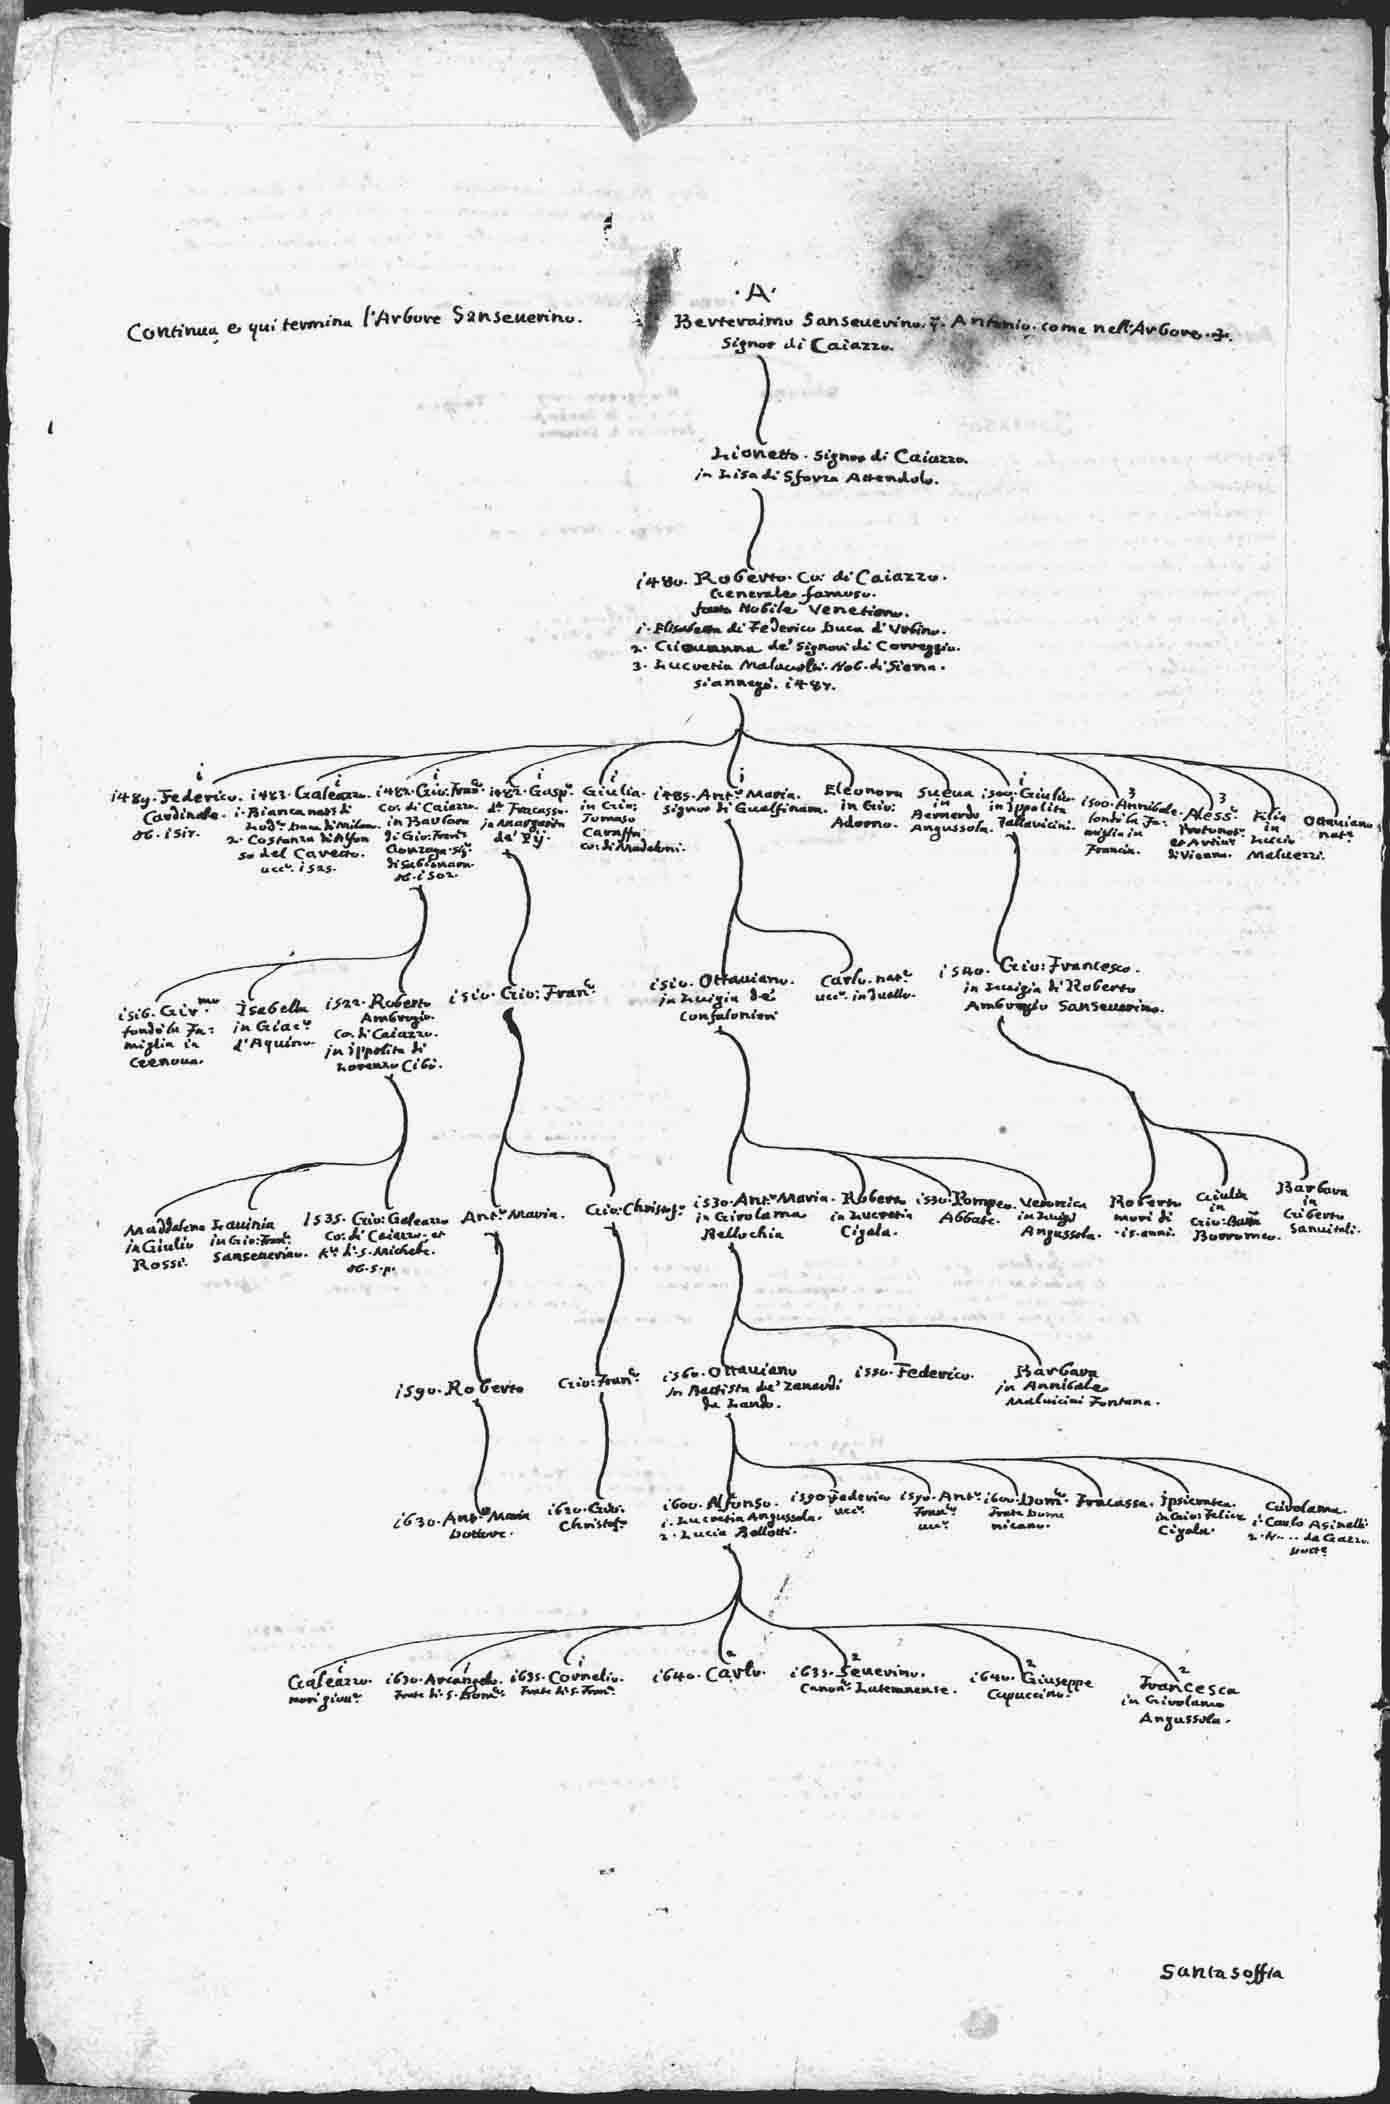 ·A·
Continua, e qui termina l'Arbore Sanseuerino.
Berteraimo Sanseuerino. q. Antonio. come nell'Arbore.
Signor di Caiazzo.
Lionetto. Signor di Caiazzo.
in Lisa di Sforza Attendolo.
1480. Roberto. Co: di Caiazzo.
Generale famoso.
fatto Nobile Venetiano.
1. Elisabetta di Federico Duca d'Vrbino.
2. Giouanna de' Signori di Correggio.
3. Lucretia Malauolti. Nob. di Siena.
si annegò. 1487.
1
1489. Federico.
Cardinale.
ob. 1517.
1
1483. Galeazzo.
1. Bianca nat. di
Lod.º Duca di Milan.
2. Costanza di Alfon
so del Caretto.
ucc.º 1525.
1
1482. Gio: Fran.º
Co: di Caiazzo.
in Barbara
di Gio: Fran.º
Gonzaga. Sig.
di Sabioneta.
ob. 1502.
1
1482. Gasp.º
d.º Fracasso.
in Margarita
de' Pij.
1
Giulia.
in Gio:
Tomaso
Caraffa
co: di Madaloni.
1
1485. Ant.º Maria.
Signor di Guelfinara.
Eleonora
in Gio:
Adorno.
Sueua
in
Bernardo
Angussola.
1
1500. Giulio
in Ippolita
Pallauicini.
3
1500. Annibale
fondò la Fa:
miglia in
Francia.
3
Aless.º
Protonot.º
di Vienna.
Filia
in
Lucio
Maluezzi.
Ottauiano
nat.º
1516. Gir.mo
fondò la Fa:
miglia in
Genoua.
Isabella
in Giac.º
d'Aquino.
1522. Roberto
Ambrogio.
Co: di Caiazzo.
in Ippolita di
Lorenzo Cibò.
1510. Gio: Fran.º
1510. Ottauiano.
in Luigia de'
Confalonieri
Carlo. nat.º
ucc.º in duello.
1540. Gio: Francesco.
in Luigia di Roberto
Ambrogio Sanseuerino.
Maddalena
in Giulio
Rossi.
Lauinia
in Gio: Fran.º
Sanseuerino.
1535. Gio: Galeazzo
Co: di Caiazzo. et
K.r di S. Michele.
ob. s.p.
Ant.º Maria.
Gio: Christof.º
1530. Ant.º Maria.
in Girolama
Bellochia
Roberto
in Lucretia
Cigala.
1530. Pompeo.
Abbate.
Veronica
in Luigi
Angussola.
Roberto
morì di
15. anni.
Giulia
in
Gio: Batt.ª
Borromeo.
Barbara
in
Giberto
Sanuitali.
1590. Roberto
Gio: Fran.º
1560. Ottauiano
in Battista de' Zanardi
da Lando.
1550. Federico.
Barbara
in Annibale
Maluicini Fontana.
1630. Ant.º Maria
Dottore.
1620. Gio:
Christof.º
1600. Alfonso.
1. Lucretia Angussola.
2. Lucia Bellotti.
1590 Federico
ucc.º
1590. Ant.º
Fran.º
ucc.º
1600. Dom.º
Frate Dome
nicano.
Fracassa.
Ipsicratea.
in Gio: Felice
Cigala.
Girolama.
1. Carlo Asinelli
2. N... da Gazzo
1
Galeazzo.
morì giou.e
1
1630. Arcangelo.
Frate di S. Dom.º
1
1635. Cornelio.
Frate di S. Fran.º
2
1640. Carlo.
2
1635. Seuerino.
Canon.º Lateranense.
2
1640. Giuseppe
Capuccino.
2
Francesca
in Girolamo
Angussola.
Santasoffia